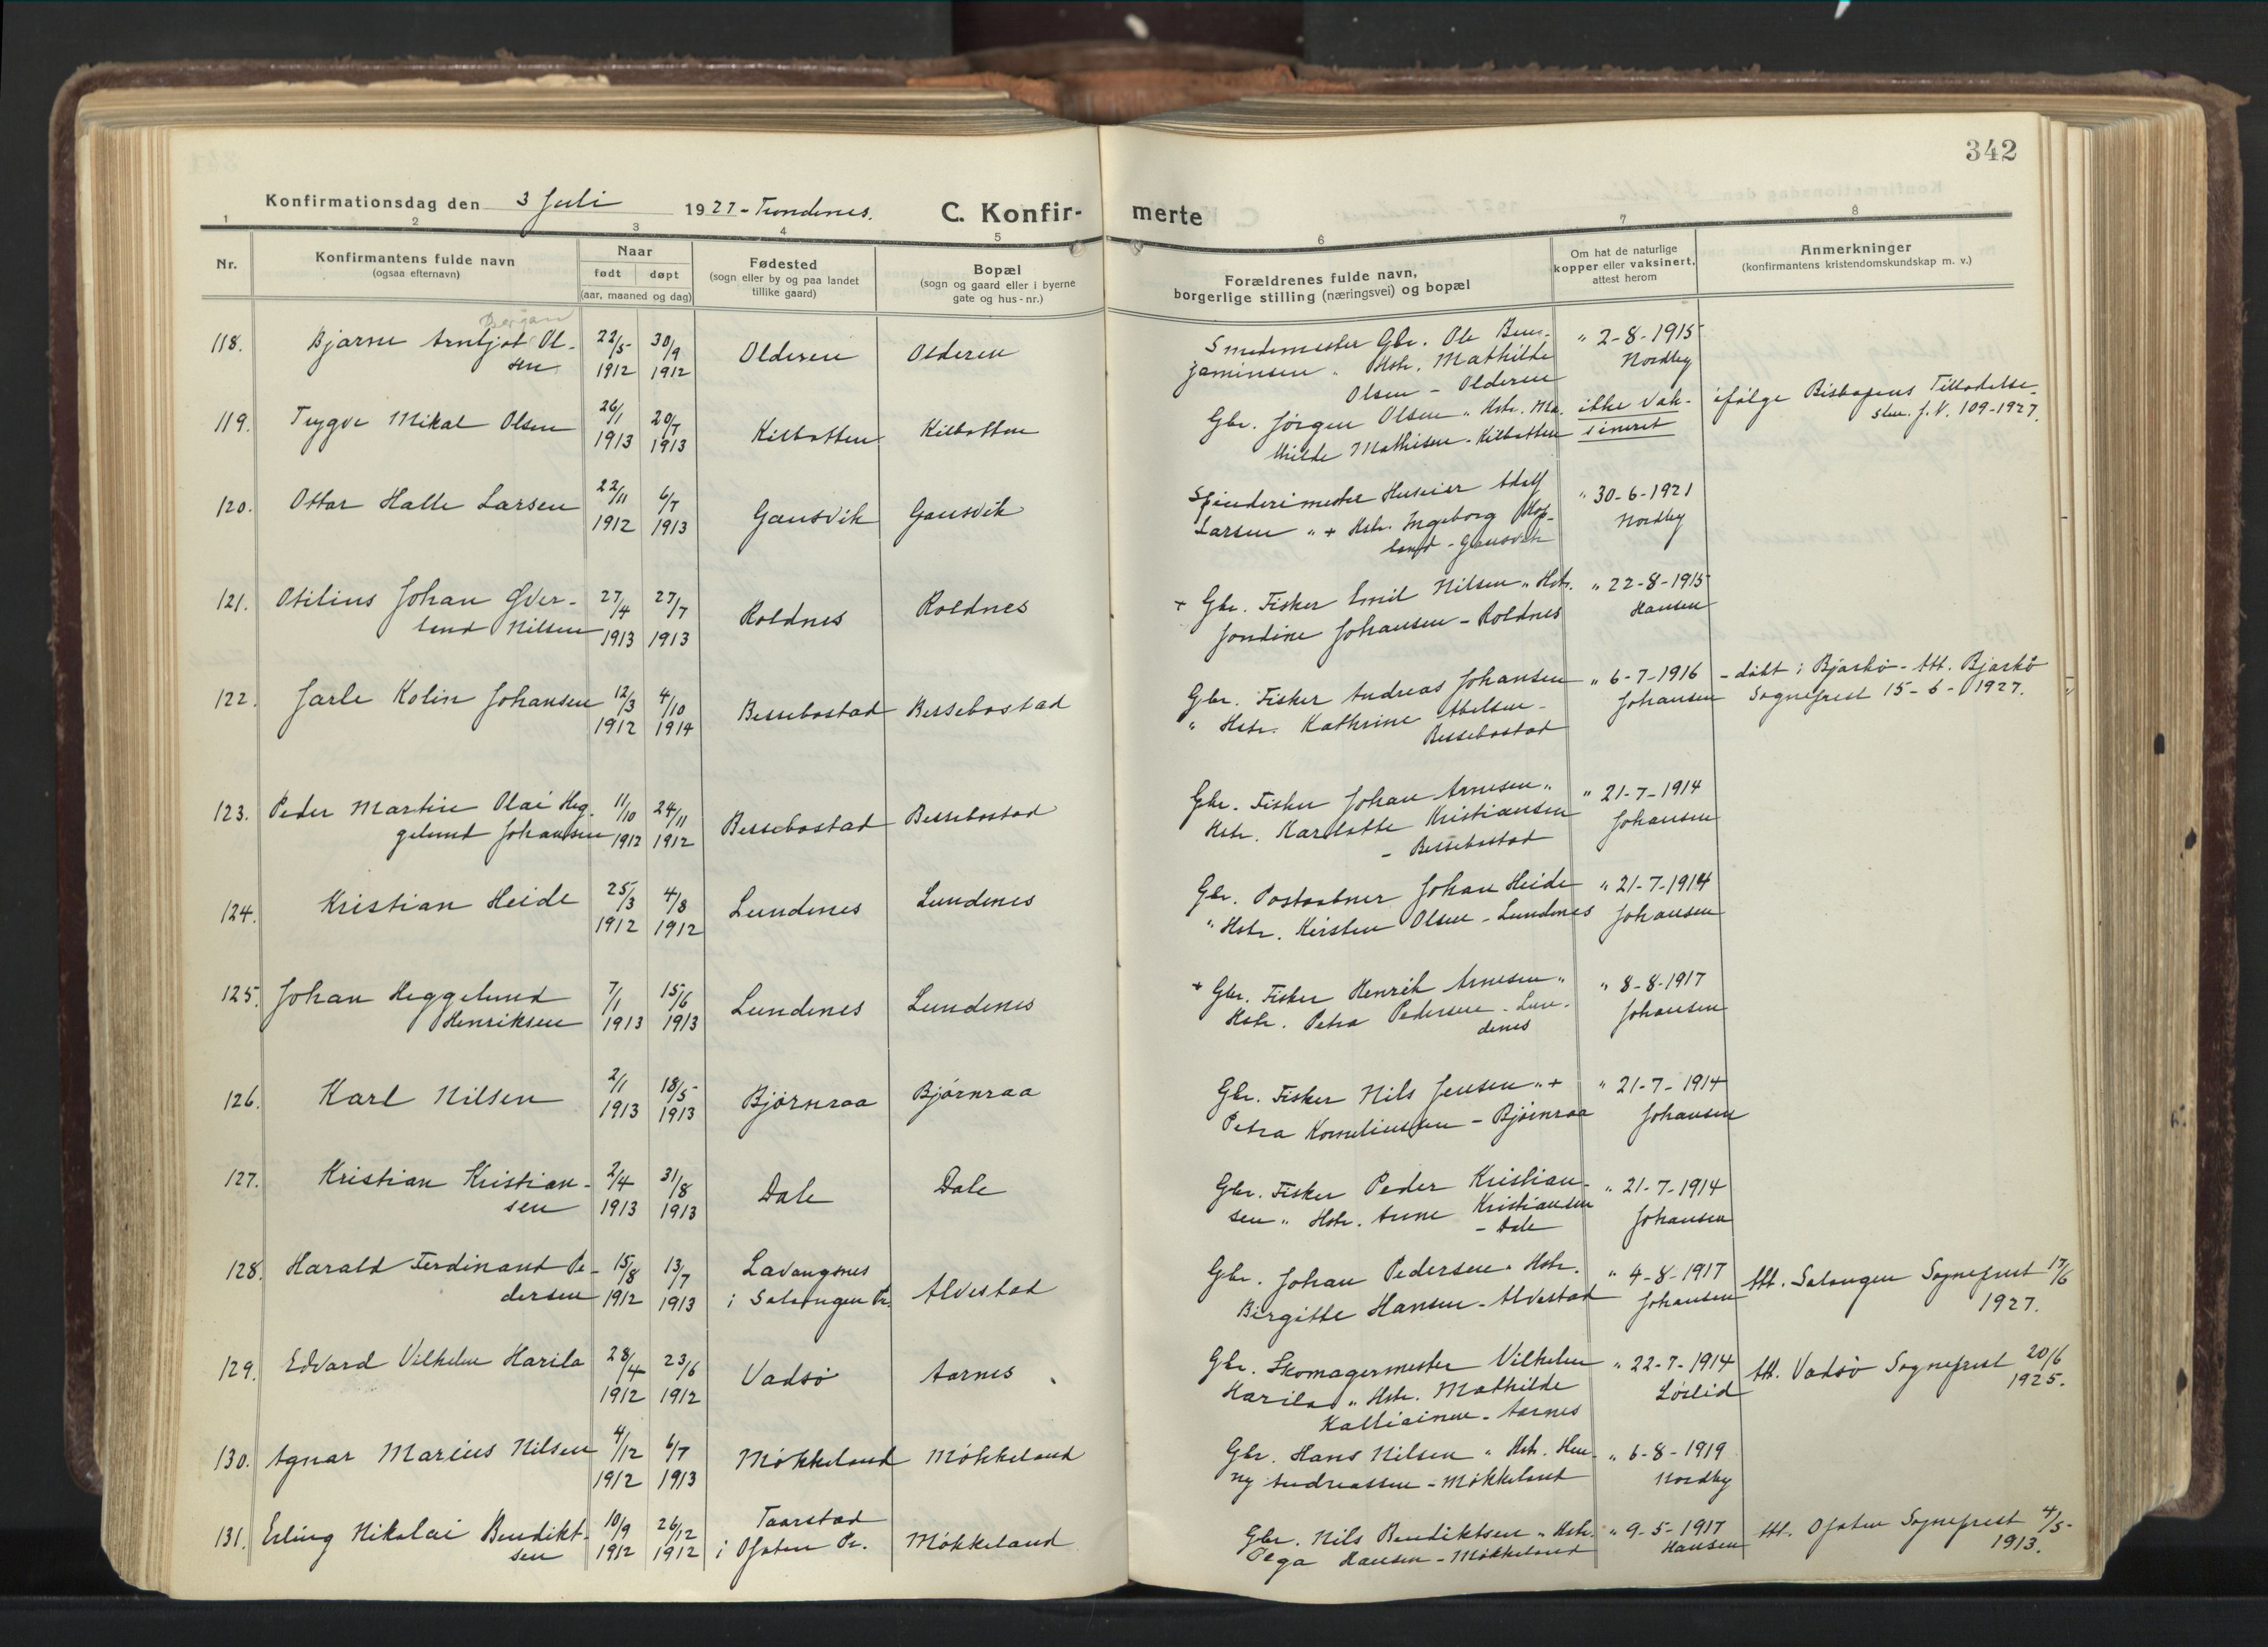 342
Konfirmationsdag den 3 Juli 1927 - Trondenes. C. Konfir- merte
1 2 3 4 5 6 7 8
Nr.
Konfirmantens fulde navn
(ogsaa efternavn)
Naar
født døpt
(aar, maaned og dag)
Fødested
(sogn eller by og paa landet
tillike gaard)
Bopæl
(sogn og gaard eller i byerne
gate og hus-nr.)
Forældrenes fulde navn,
borgerlige stilling (næringsvei) og bopæl
Om hat de naturlige
kopper eller vaksinert,
attest herom
Anmerkninger
(konfirmantens kristendomskundskap m. v.)
118. Bjarne Arnljot Ol- 22/5 30/9 Olderen Olderen Smedemester Gbr. Ole Ben- " 2-8-1915
sen 1912 1912 jaminsen " Hstr. Mathilde Nordby
Olsen - Olderen
119. Trygve Mikal Olsen 26/1 20/7 Kilbotten Kilbotten Gbr. Jørgen Olsen " Hstr. Ma- ikke vak- ifølge Biskopens Tilladelse
1913 1913 thilde Mathisen - Kilbotten sineret skr. J.V. 109-1927.
120. Ottar Halle Larsen 22/11 6/7 Gausvik Gausvik Spinderimester Huseier Adolf " 30-6-1921
1912 1913 Larsen " + Hstr. Ingeborg Nordby
- Gausvik
121. Otilius Johan Øver- 27/4 27/7 Roldnes Roldnes + Gbr. Fisker Emil Nilsen " Hstr. " 22-8-1915
land Nilsen 1913 1913 Jondine Johansen - Roldnes Hansen
122. Jarle Kolin Johansen 12/3 4/10 Bessebostad Bessebostad Gbr. Fisker Andreas Johansen " 6-7-1916 - døbt i Bjarkö - Att. Bjarkö
1912 1914 " Hstr. Kathrine Abelsen - Johansen Sogneprest 15-6-1927.
Bessebostad
123. Peder Martin Olai Heg- 11/10 24/11 Bessebostad Bessebostad Gbr. Fisker Johan Arnesen " " 21-7-1914
gelund Johansen 1912 1912 Hstr. Karlotte Kristiansen Johansen
- Bessebostad
124. Kristian Heide 25/3 4/8 Lundenes Lundenes Gbr. Postaabner Johan Heide " 21-7-1914
1912 1912 " Hstr. Kirsten Olsen - Lundenes Johansen
125. Johan Heggelund 7/1 15/6 Lundenes Lundenes + Gbr. Fisker Henrik Arnesen " " 8-8-1917
Henriksen 1913 1913 Hstr. Petra Pedersen - Lun- Johansen
denes
126. Karl Nilsen 2/1 18/5 Bjørnraa Bjørnraa Gbr. Fisker Nils Jensen " + " 21-7-1914
1913 1913 Petra Korneliussen - Bjørnraa Johansen
127. Kristian Kristian- 2/4 31/8 Dale Dale Gbr. Fisker Peder Kristian- " 21-7-1914
sen 1913 1913 sen " Hstr. Anne Kristiansen Johansen
- Dale
128. Harald Ferdinand Pe- 15/8 13/7 Lavangsnes Alvestad Gbr. Johan Pedersen " Hstr. " 4-8-1917 Att. Salangen Sogneprest 17/6
dersen 1912 1913 i Salangen Pr. Birgitte Hansen - Alvestad Johansen 1927.
129. Edvard Vilhelm Harila 28/4 23/6 Vadsö Aarnes Gbr. Skomagermester Vilhelm " 22-7-1914 Att. Vadsö Sogneprest 20/6
1912 1912 Harila " Hstr. Mathilde Løslid 1925.
Kalliainen - Aarnes
130. Agnar Marius Nilsen 4/12 6/7 Møkkeland Møkkeland Gbr. Hans Nilsen " Hstr. Hen- " 6-8-1919
1912 1913 ny Andreassen - Møkkeland Nordby
131. Erling Nikolai Bendikt- 10/9 26/12 Taarstad Møkkeland Gbr. Nils Bendiktsen " Hstr. " 9-5-1917 Att. Ofoten Sogneprest 4/5
sen 1912 1912 i Ofoten Pr. Olga Hansen - Møkkeland Hansen 1913.